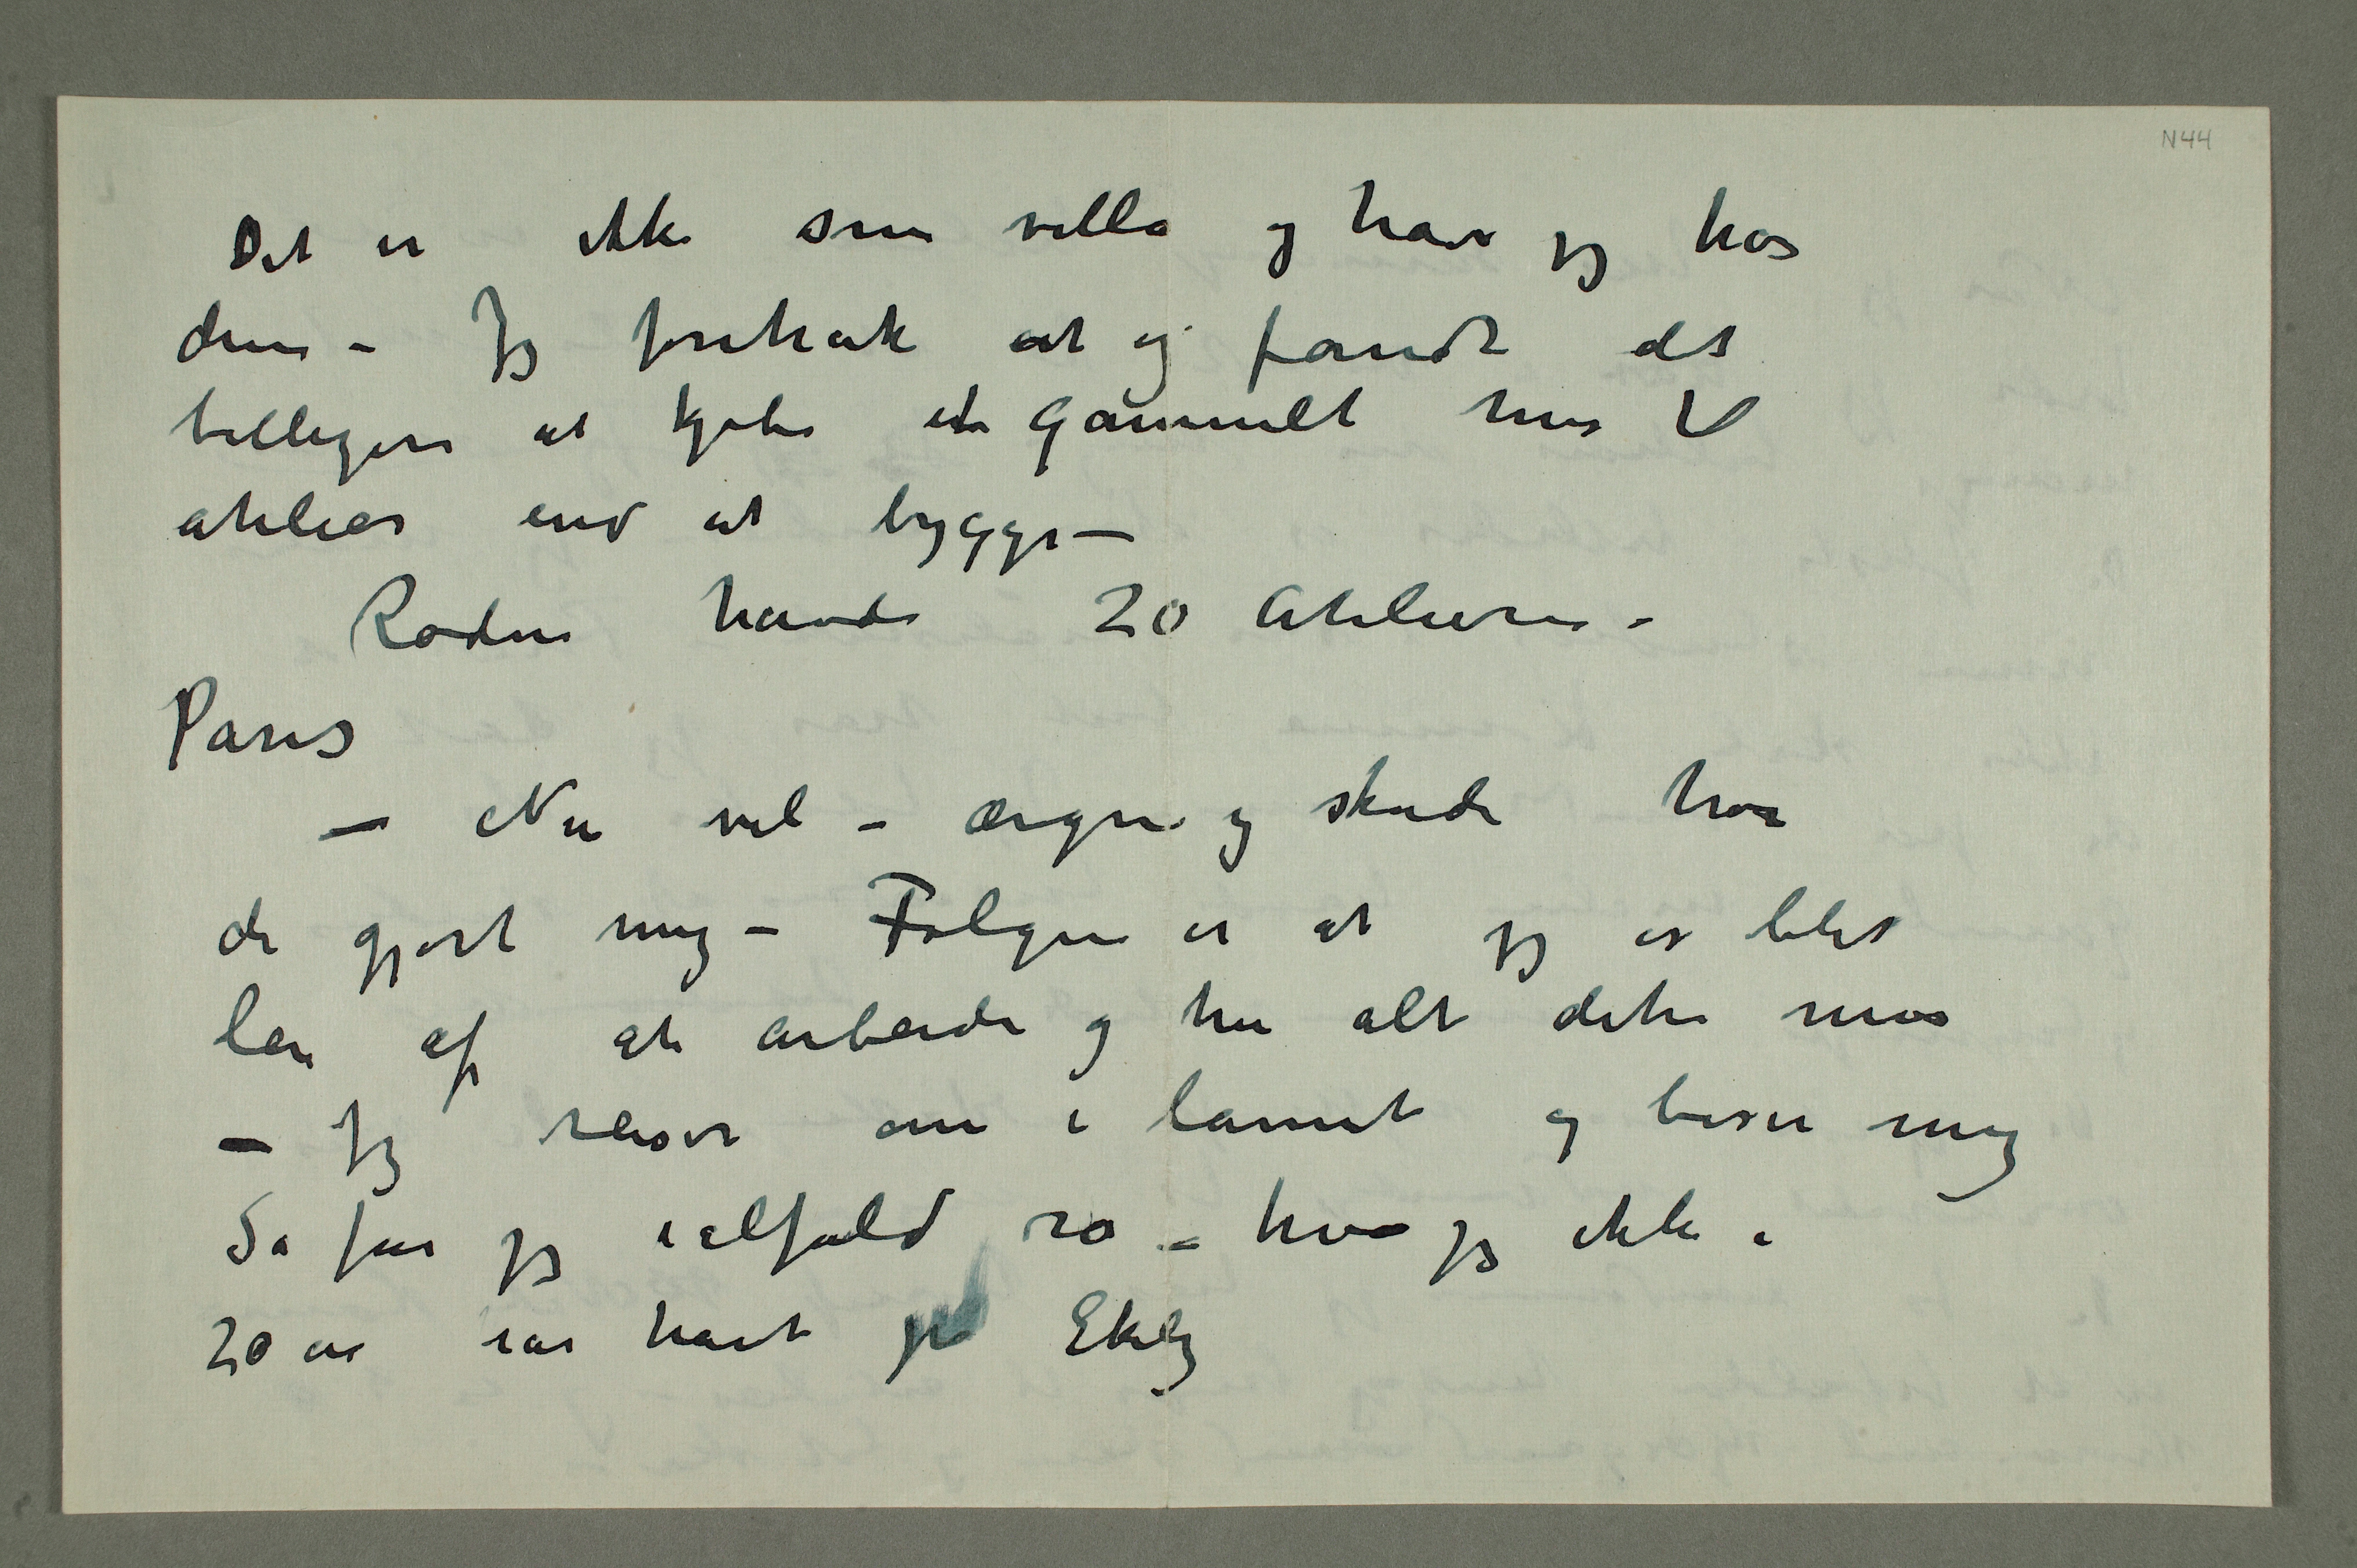 N44
Det er ikke som villa og have jeg har
dem – Jeg foretrak at og fandt det
billigere at kjøbe et gammelt hus til
atelier end at bygge –
Rodin havde 20 Atelierer.
Paris
– Nu vel – ærgre og skade har
de gjort mig – Følgen er at jeg er blet
lei af at arbeide og hu alt dette mas
– Jeg reiser om i landet og beser mig
Så får jeg ialfald ro – hva jeg ikke i
20 år har havt på Ekely